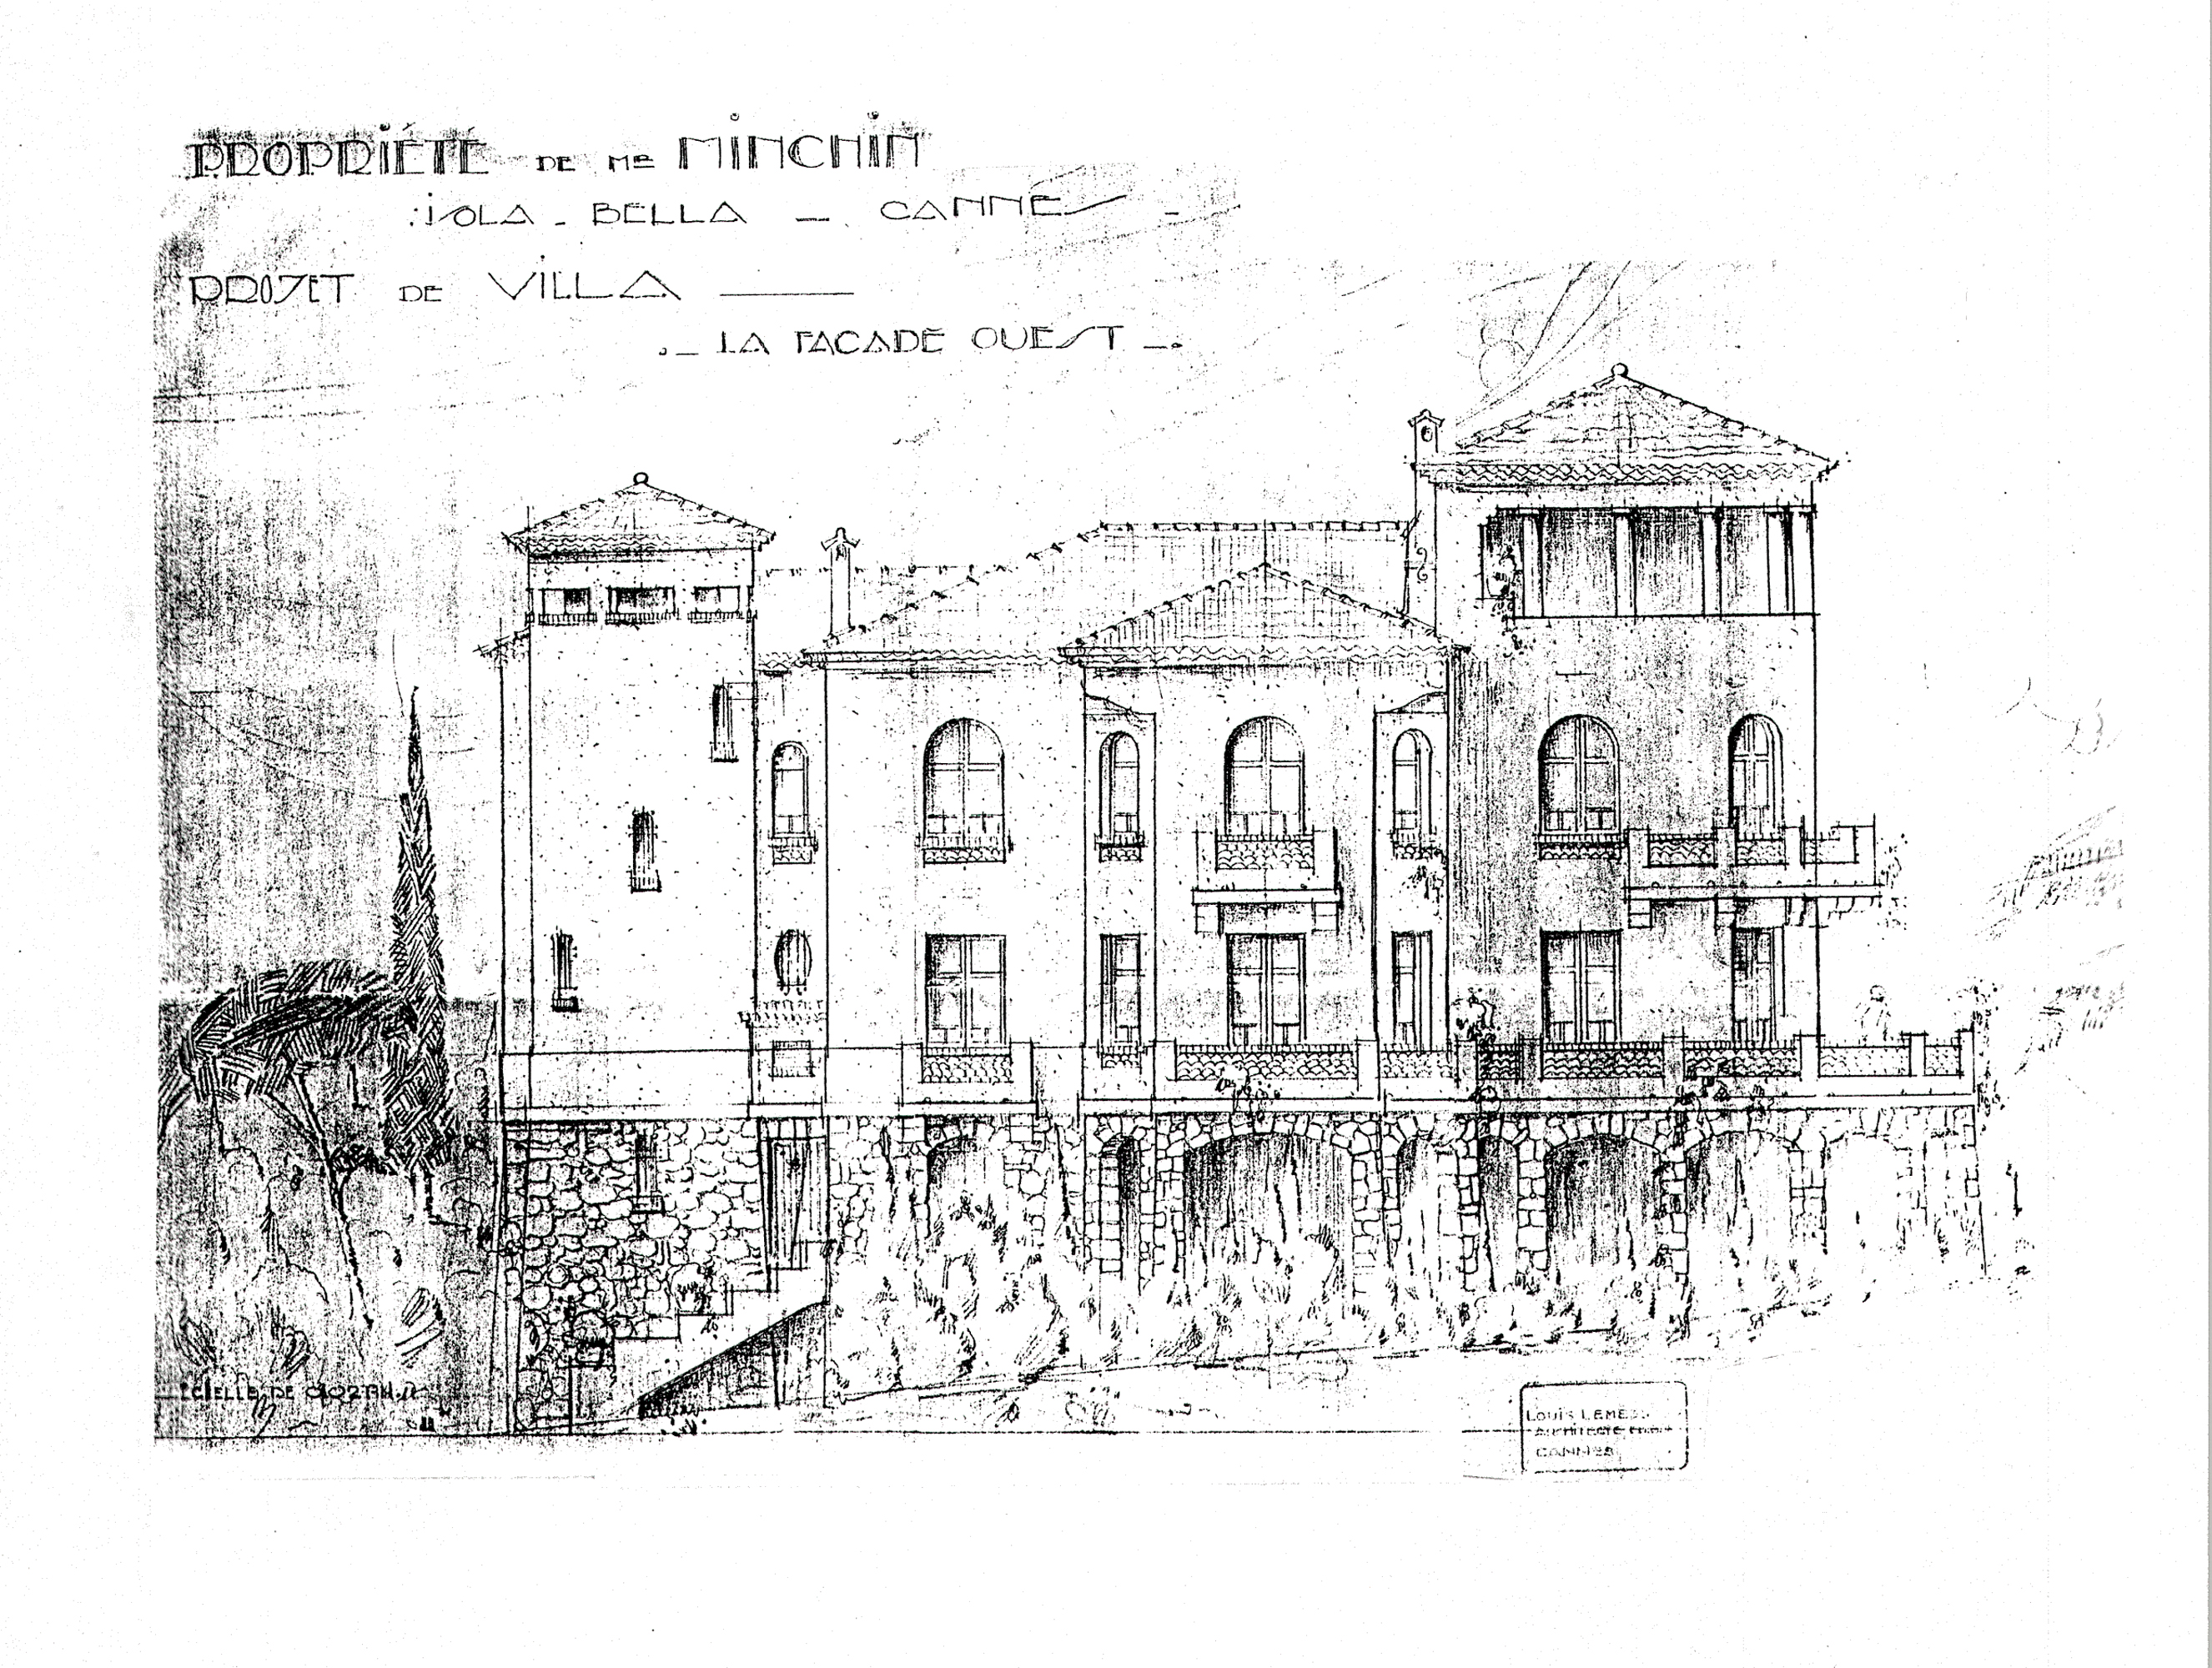 PROPRIÉTÉ DE MR MINCHIN
ISOLA - BELLA — CANNES -
PROJET DE VILLA
. — LA FACADE OUEST — .
DE
LOUIS
ARCHITECTE
CANNES